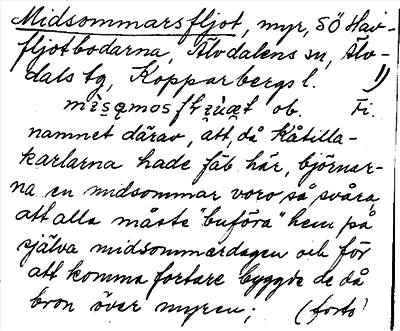 Midsommarsfljot, myr, SÖ Hav-
fljotbodarna, Älvdalens sn, Älv-
dals tg, Kopparbergs l. 1)
ob. Fi.
namnet därav, att, då Kåtilla-
karlarna hade fäb här, björnar-
na en midsommar voro så svåra
att alla måste "buföra" hem på
själva midsommardagen och för
att komma fortare byggde de då
bron över myren; (forts!